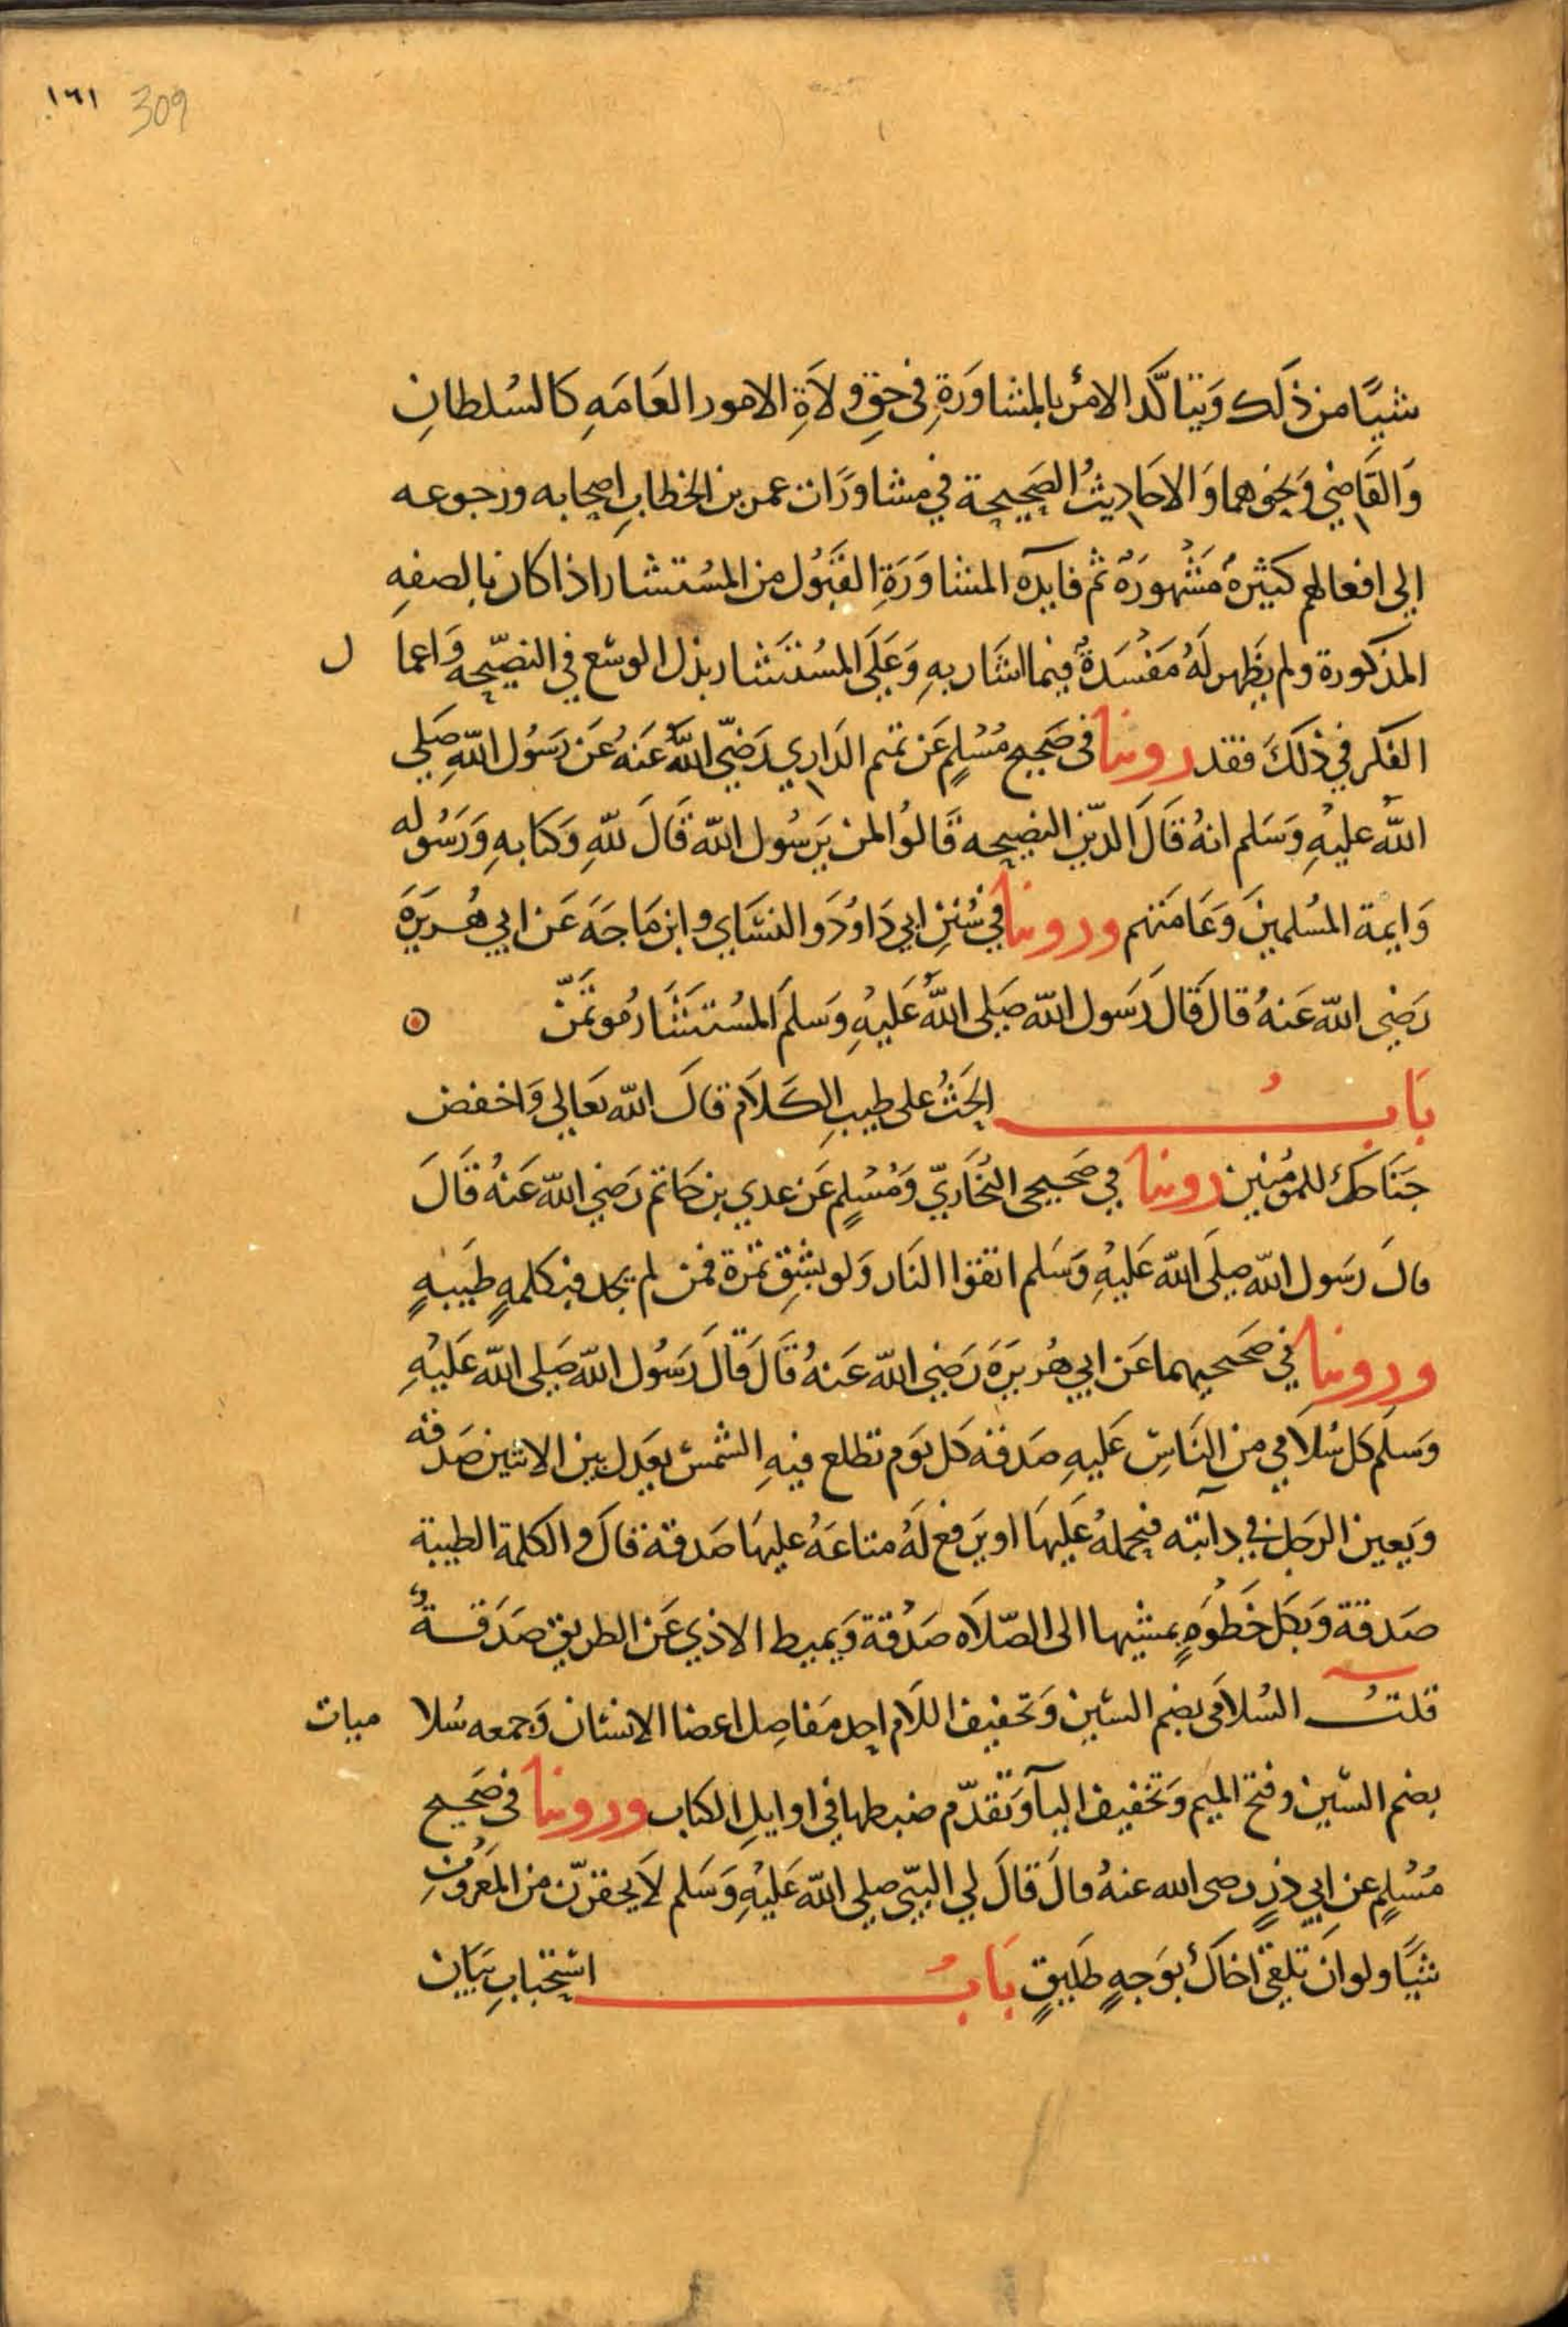 ١٦١ 309
شيًا من ذلك وَيتاكَّد الامرُ بالمشاوَرَةِ في حقِ ولَاةِ الامور العَامَهِ كالسُلطانِ
وَالقَاضِي وَنحوهما وَالاحَاديثُ الصَحيحة في مشاوَرَات عمر بن الخطابِ اصحابه ورجوعه
إلى افعالهم كثيرةٌ مَشْهُورَةٌ ثم فايدة المشاوَرَةِ القَبُول من المسُتشار اذا كان بالصفهِ
المذكورة ولم يظَهر لَهُ مَفْسَدةٌ فيما اشَار بهِ وَعَلَى المسُتشَار بذل الوسْع في النصّيحه وَاعما ل
الفكر في ذلكَ فقد روينا في صَحيح مُسْلمٍ عَن تميم الدَاري رَضيَ اللهُ عَنهُ عَن رَسُول اللهِ صَلي
اللهُ عليْهِ وَسَلم انهُ قَالَ الدّين النصيحه قَالوُا لمن يَرسُول الله قَالَ للهِ وَكتابهِ وَرَسُوله
وَايمة المسُلمينَ وَعَامتهم وروينا في سُنَنِ ابي دَاوُدَ والنسَاي وابن مَاجَهَ عَن ابي هُريَرَةَ
رَضي الله عَنهُ قالَ قَالَ رَسَول الله صَلي اللهُ عَليْهِ وَسَلمَ المسُتشَار مُوتَمَنٌ
بَابُ الحَثُ على طيبِ الكَلَام قالَ الله تعَالي وَاخفض
جَنَاحَكَ للمُومنين روينا في صَحيحي البُخَاريّ وَمُسْلمٍ عَن عدي بن حَاتم رَضي الله عَنهُ قَالَ
قالَ رسَول الله صلىَ الله عَليهِ وَسَلم اتقوا النَار وَلو بشِقِ تمرَة فمن لم يجد فبكلمهٍ طَيبَهٍ
وروينا في صَحيحيهما عَن ابي هُريرَة رَضي الله عَنهُ قَالَ قَالَ رَسُول الله صَلى الله عَليْهِ
وَسَلم كل سُلاَمي من النَاسِ عَليهِ صَدقة كل يَوم تطلع فيهِ الشمسْ يعَدل بين الاثنين صَدقه
وَيعين الرَجل في دابَته فيحملهُ عَليهَا او يَرفع لهُ متاعَهُ عليهَا صَدقة قالَ والكلمة الطيبة
صَدقة وَبكل خَطْوَهٍ يمشيها الى الصّلاَه صَدقة وَيميط الاذي عَن الطريق صَدَقةٌ
قلتُ السُلامَى بضم السْين وَتخفيف اللاَم احد مَفاصِل اعضا الانسْان وَجمعه سُلا ميات
بضم السْين وفتح الميم وَتخفيف اليآ وَتقدّم ضبطها في اوايل الكتاب وروينا في صَحيح
مُسْلمٍ عن ابي ذر رضي الله عنهُ قالَ قالَ لي النبّي صلي الله عَليْهِ وَسَلم لَا يحقرنّ من المعَرُوفِ
شيَا ولو انَ تلقىَ اخاكَ بوَجهٍ طَليقٍ بَابُ اسْتحَبابِ بَيَان